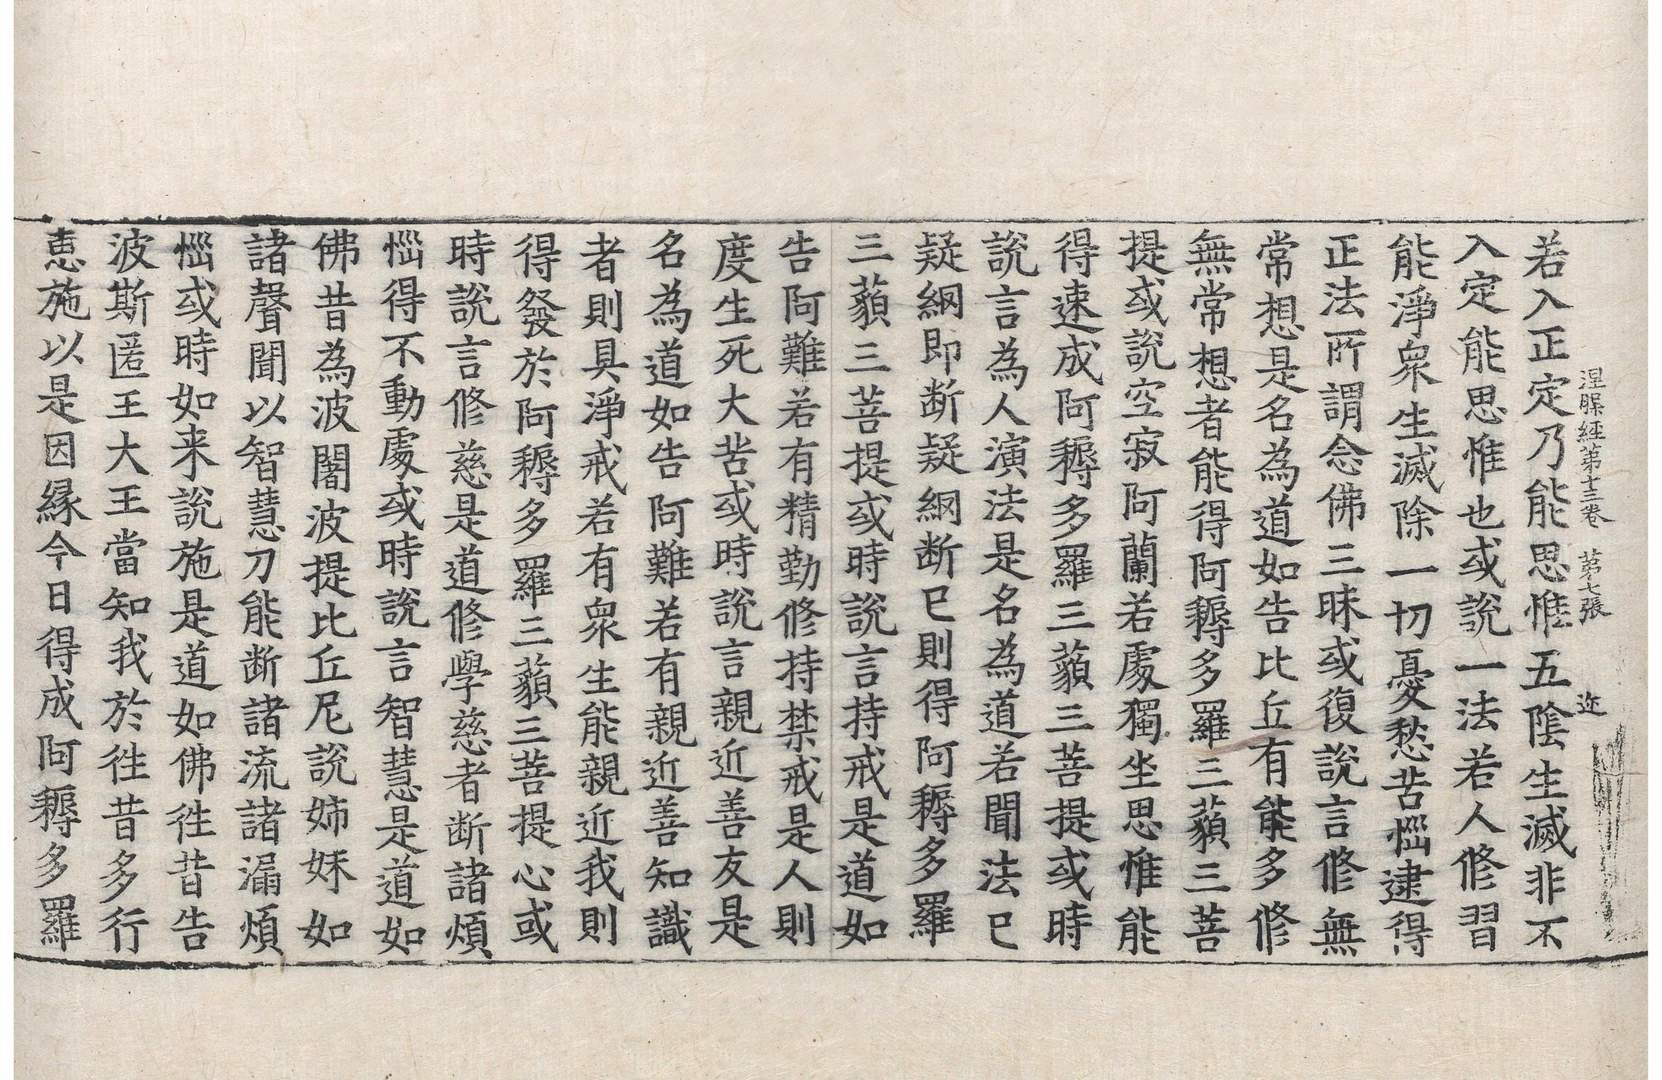 涅槃經第十三卷 第七張 迩
若入正定乃能思惟五陰生滅非不
入定能思惟也或說一法若人修習
能淨衆生滅除一切憂愁苦惱逮得
正法所謂念佛三昧或復說言修無
常想是名為道如告比丘有能多修
無常想者能得阿耨多羅三藐三菩
提或說空寂阿蘭若處獨坐思惟能
得速成阿耨多羅三藐三菩提或時
說言為人演法是名為道若聞法已
疑網即断疑網断已則得阿耨多羅
三藐三菩提或時說言持戒是道如
告阿難若有精勤修持禁戒是人則
度生死大苦或時說言親近善友是
名為道如告阿難若有親近善知識
者則具淨戒若有衆生能親近我則
得發於阿耨多羅三藐三菩提心或
時說言修慈是道修學慈者断諸煩
惱得不動處或時說言智慧是道如
佛昔為波闍波提比丘尼說姉妹如
諸聲聞以智慧刀能断諸流諸漏煩
惱或時如来說施是道如佛徃昔告
波斯匿王大王當知我於徃昔多行
惠施以是因緣今日得成阿耨多羅